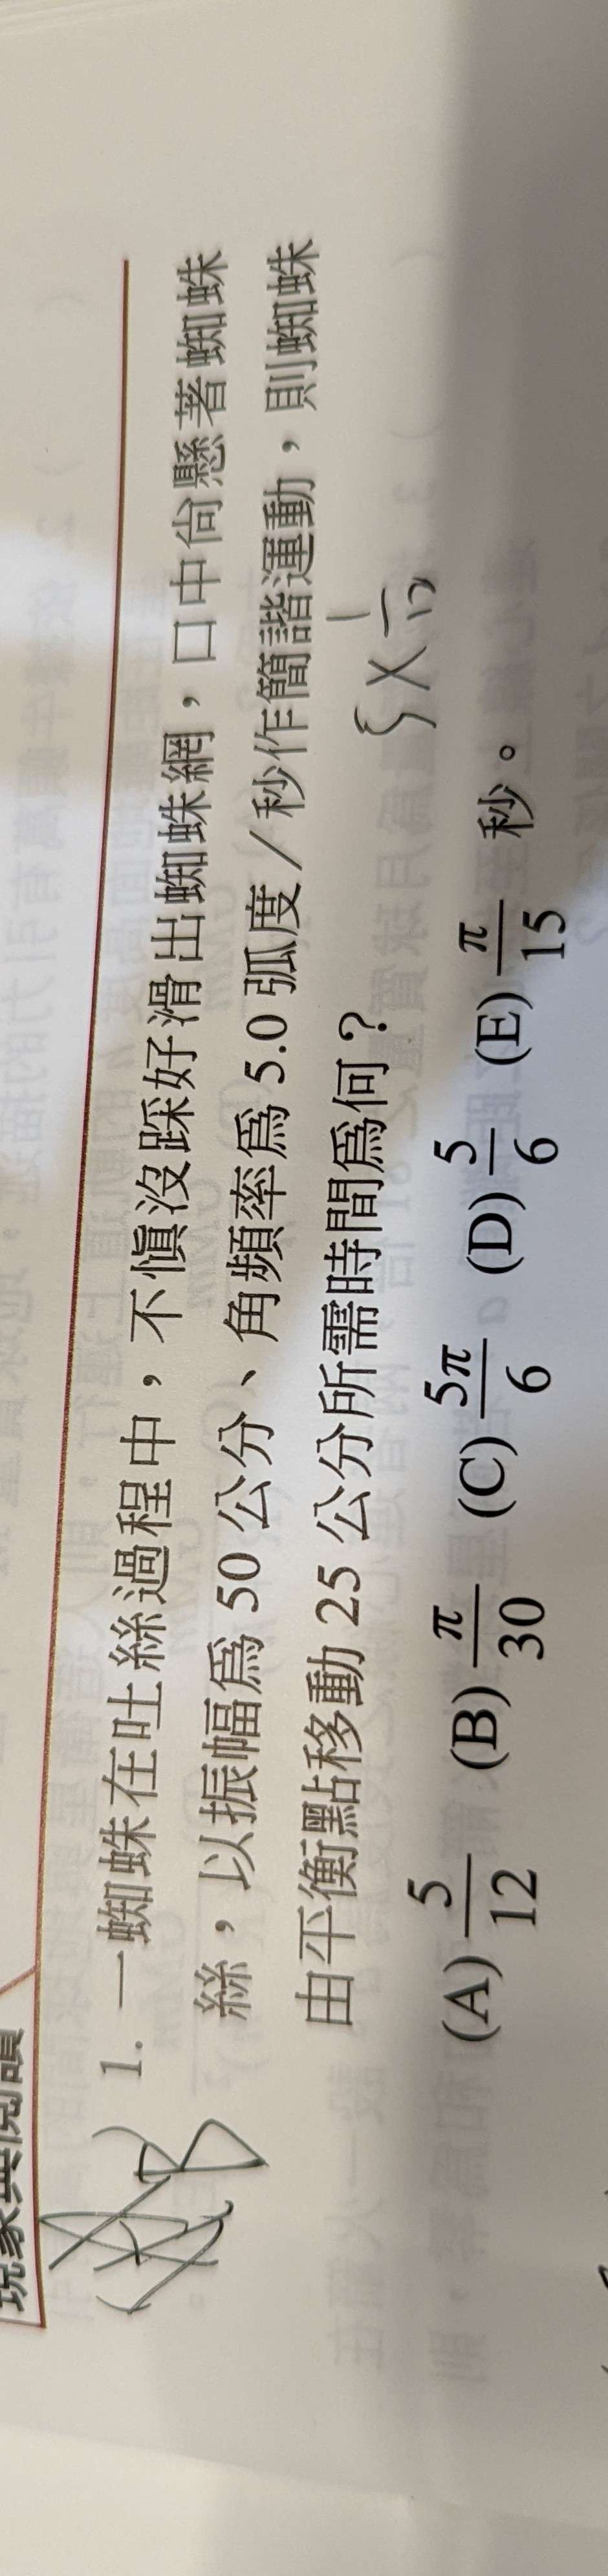 玩家真閱讀
1. 一蜘蛛在吐絲過程中，不慎沒踩好滑出蜘蛛網，口中尚懸著蜘蛛
絲，以振幅為 50 公分、角頻率為 5.0 弧度／秒作簡諧運動，則蜘蛛
由平衡點移動 25 公分所需時間為何？
5 × 1/12
(A) 5/12 (B) π/30 (C) 5π/6 (D) 5/6 (E) π/15 秒。
B